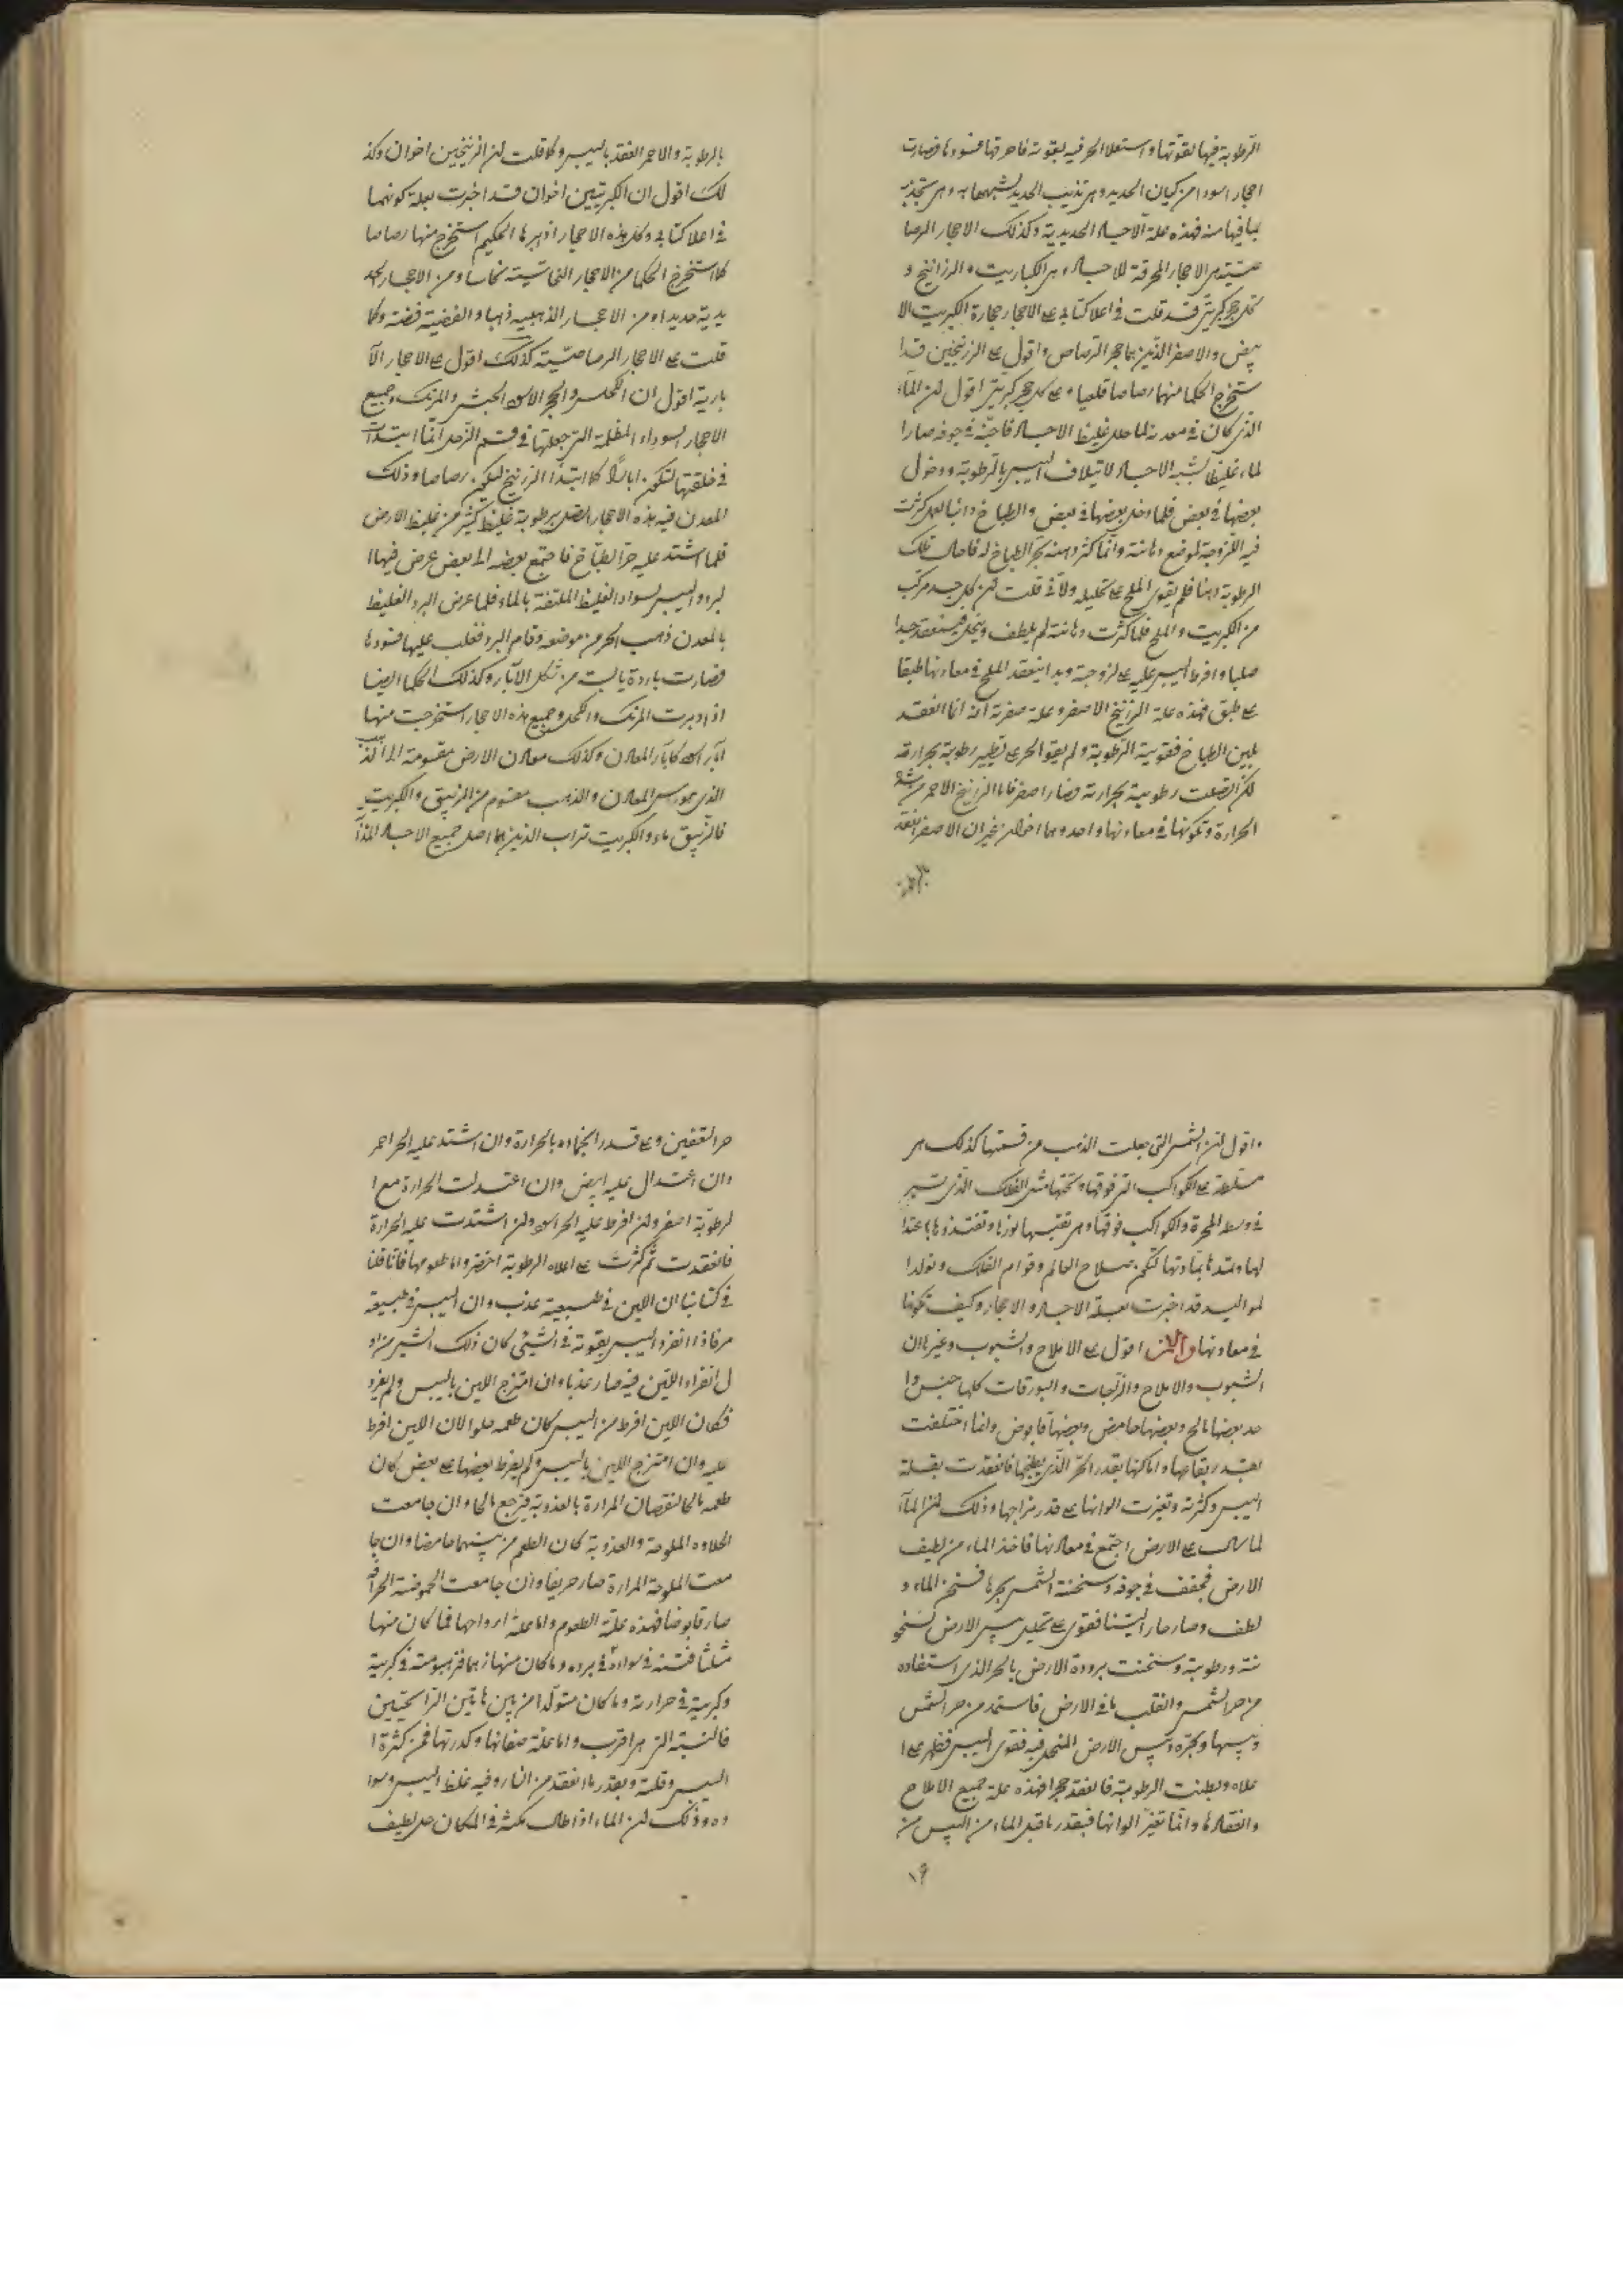 الرطوبة فيها لقوتها واستعلا الحر فيه بقوته فاحرقها فسودها فصارت
احجار اسودا من كيان الحديد وهى تذيب الحديد لشبهها به وهى تجذبه
بما فيها منه فهذه علة الاجساد الحديدية وكذلك الاحجار الرصا
صية هى الاحجار المحرقة للاجساد وهى الكباريت والزرانيخ و
كل حجر كبريتى قد قلت فى اعلا كتابى على الاحجار حجارة الكبريت الا
بيض والاصفر الذين هما حجر الرصاص واقول على الزرنيخين قد ا
ستخرج الحكما منهما رصاصا قلعيا وعلى كل حجر كبريتى اقول لان الماء
الذى كان فى معدنه لما حلل غليظ الاجساد فاجنه فى جوفه صار ا
لماء غليظا يشبه الاجساد لايتلاف اليبس بالرطوبة ودخول
بعضها فى بعض فلما دخل بعضها فى بعض والطباخ دائبا لعمل كثرت
فيه اللزوجة لموضع دهانته وانما كثر دهنه بحر الطباخ له فاحال تلك
الرطوبة دهنا فلم يقوى الملح على تحليله ولانى قلت ان كل جسد مركب
من الكبريت والملح فلما كثرت دهانته لم يلطف وينحل فينعقد جسدا
صلبا وافرط اليبس عليه على لزوجته وبدا ينعقد الملح فى معادنها طبقا
على طبق فهذه علة الزرنيخ الاصفر وعلة صفرته انه انما انعقد
بلين الطباخ فقويت الرطوبة ولم يقو الحر على تطيير رطوبته بحرارته
لكن اتصلت رطوبته بحرارته فصار اصفر فاما الزرنيخ الاحمر من شدة
الحرارة وتكونها فى معادنها واحد وهما اخوان غير ان الاصفر انعقد
بالرطوبة
بالرطوبة والاحمر انعقد باليبس وكما قلت ان الزرنيخين اخوان وكذ
لك اقول ان الكبريتين اخوان قد اخبرت بعلة كونهما
فى اعلا كتابى وكل هذه الاحجار اذ دبرها الحكيم استخرج منها رصاصا
كما استخرج الحكما من الاحجار النحاسية نحاسا ومن الاحجار الحد
يدية حديدا ومن الاحجار الذهبيه ذهبا والفضية فضة وكما
قلت على الاحجار الرصاصية كذلك اقول على الاحجار الآ
بارية اقول ان الكحل والحجر الاسود الحبشى والمرتك وجميع
الاحجار السوداء المظلمة التى جعلتها فى قسم الزحل انما ابتدات
فى خلقتها لتكون ابارا كما ابتدا الزرنيخ ليكون رصاصا وذلك
المعدن فيه هذه الاحجار اتصل برطوبة غليظ كثير من غليظ الارض
فلما اشتد عليه حر الطباخ فاجتمع بعضه الى بعض عرض فيها ا
لبرد واليبس لسواد الغليظ الملتفة بالماء فلما عرض البرد الغليظ
بالمعدن ذهب الحر من موضعه وقام البرد فغلب عليها فسودها
فصارت باردة يابسة من شكل الآبار وكذلك الحكما ايضا
اذا دبرت المرتك والكحل وجميع هذه الاحجار استخرجت منها
آبار اسود كابار المعادن وكذلك معادن الارض مقسومة الى الذهب
الذى هو راس المعادن والذهب مقسوم من الزيبق والكبريت
فالزيبق ماء والكبريت تراب الذين هما اصل جميع الاجساد المذآ
واقول ان الشمس التى جعلت الذهب من قسمتها كذلك هى
مسلطة على الكواكب التى فوقها وتحتها مثل الفلك الذى تسير
فى وسط المجرة والكواكب فوقها وهى تقتبسها نورها وتغتذوها بما غذا
لها وتمدها بمادتها لتكون صلاح العالم وقوام الفلك وتولد ا
لمواليد قد اخبرت بعلة الاجساد والاحجار وكيف تكونها
فى معادنها والان اقول على الاملاح والشبوب وغيرها ان
الشبوب والاملاح والزاجات والبورقات كلها جنس وا
حد بعضها مالح وبعضها حامض وبعضها قابوض وانما اختلفت
بقدر بقاعها واماكنها بقدر الحر الذى يطبخها فانعقدت بقلة
اليبس وكثرته وتغيرت الوانها على قدر مزاجها وذلك ان الماء
لما سال على الارض اجتمع فى معادنها فاخذ الماء من لطيف
الارض فجفف فى جوفه وسخنته الشمس بحرها فسخن الماء و
لطف وصار حارا لينا فقوى على تحليل يبس الارض لسخو
نته ورطوبته وسخنت برودة الارض بالحر الذى استفاده
من حر الشمس وانقلب ما فى الارض فاستمد من حر الشمس
ويبسها وبحره ويبس الارض المنحل فيه فقوى اليبس فظهر على ا
علاه وبطنت الرطوبة فانعقد حجرا فهذه علة جميع الاملاح
وانعقادها وانما تغير الوانها فبقدر ما قبل الماء من اليبس من
١٩
حر التعفين وعلى قدر انجماده بالحرارة وان اشتد عليه الحر احمر
وان اعتدال عليه ابيض وان اعتدلت الحرارة مع ا
لرطوبة اصفر وان افرط عليه الحر اسود وان اشتدت عليه الحرارة
فانعقدت ثم كثرت على اعلاه الرطوبة اخضر واما طعومها فاناقلنا
فى كتابنا ان اللين فى طبيعته عذب وان اليبس فى طبيعته
مر فاذا انفرد اليبس بقوته فى الشئى كان ذلك الشئ مرا و
ل انفراد اللين فيه صار عذبا وان امتزج اللين باليبس ولم يفرد
فكان اللين افرط من اليبس كان طعمه حلوا لان اللين افرط
عليه وان امتزج اللين باليبس ولم يفرط بعضها على بعض كان
طعمه مالحا لنقصان المرارة بالعذوبة فيرجع مالحا وان جامعت
الحلاوه الملوحة والعذوبة كان الطعم من بينهما حامضا وان جا
معت الملوحة المرارة صار حريفا وان جامعت الحموضة الحرافة
صار قابوضا فهذه علة الطعوم واما علة ارواحها فما كان منها
منتنا فنتنه فى سواده فى برده وما كان منها زهما فزهومته فى كبريته
وكبريته فى حرارته وما كان متولدا من بين هاتين الرايحتين
فالنسبة التى هى اقرب واما علة صفائها وكدرتها فمن كثرة ا
اليبس وقلته وبقدر ما انعقد من النار وفيه غلظ اليبس وسوا
ده وذلك ان الماء اذا طال مكثه فى المكان حلل لطيف